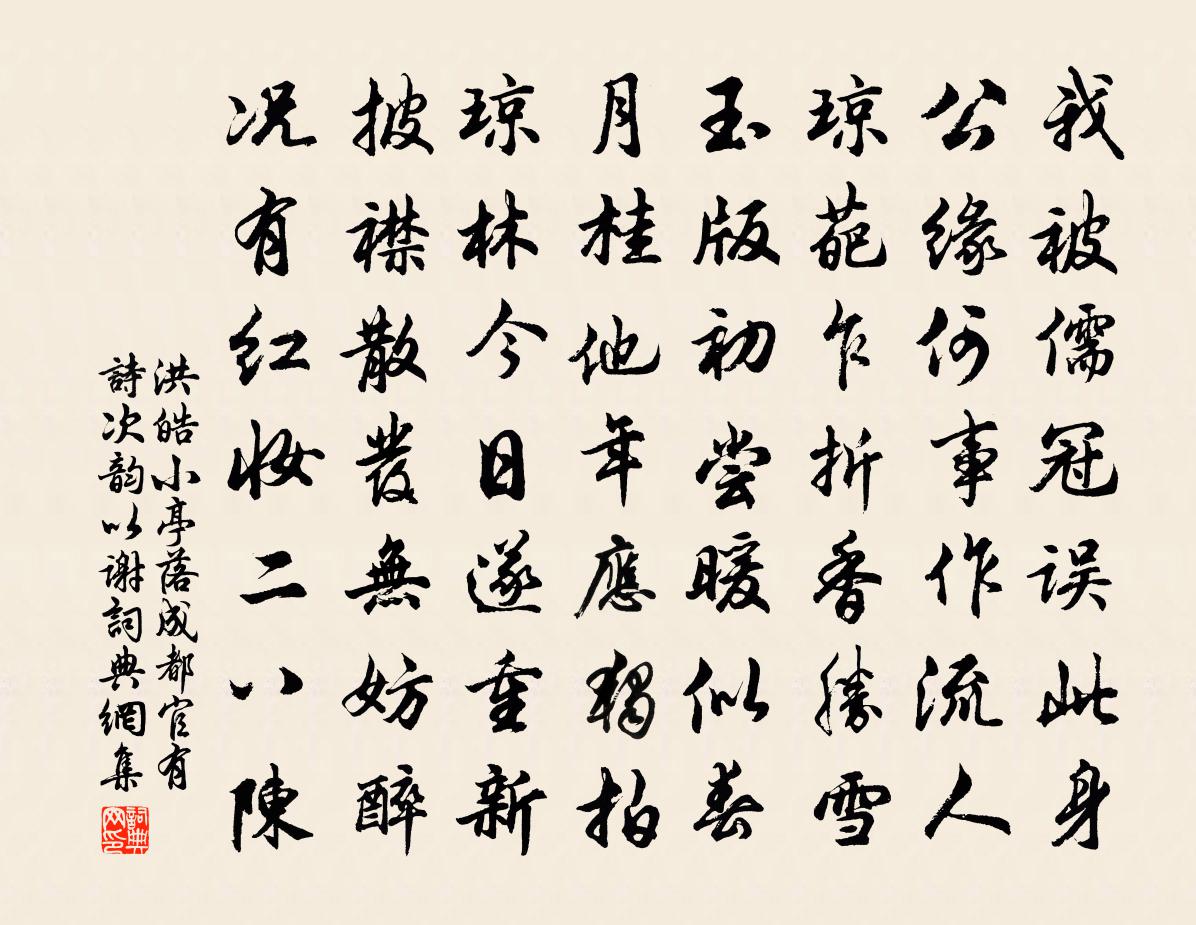 我被儒冠误此身
公缘何事作流人
琼葩乍折香勝雪
玉版初尝暖似春
月桂他年應獨拍
琼林今日遂重新
披襟散发無妨醉
况有红妆二八陳
洪皓小亭落成都官有
詩次韵以谢詞典網集
詞典网印